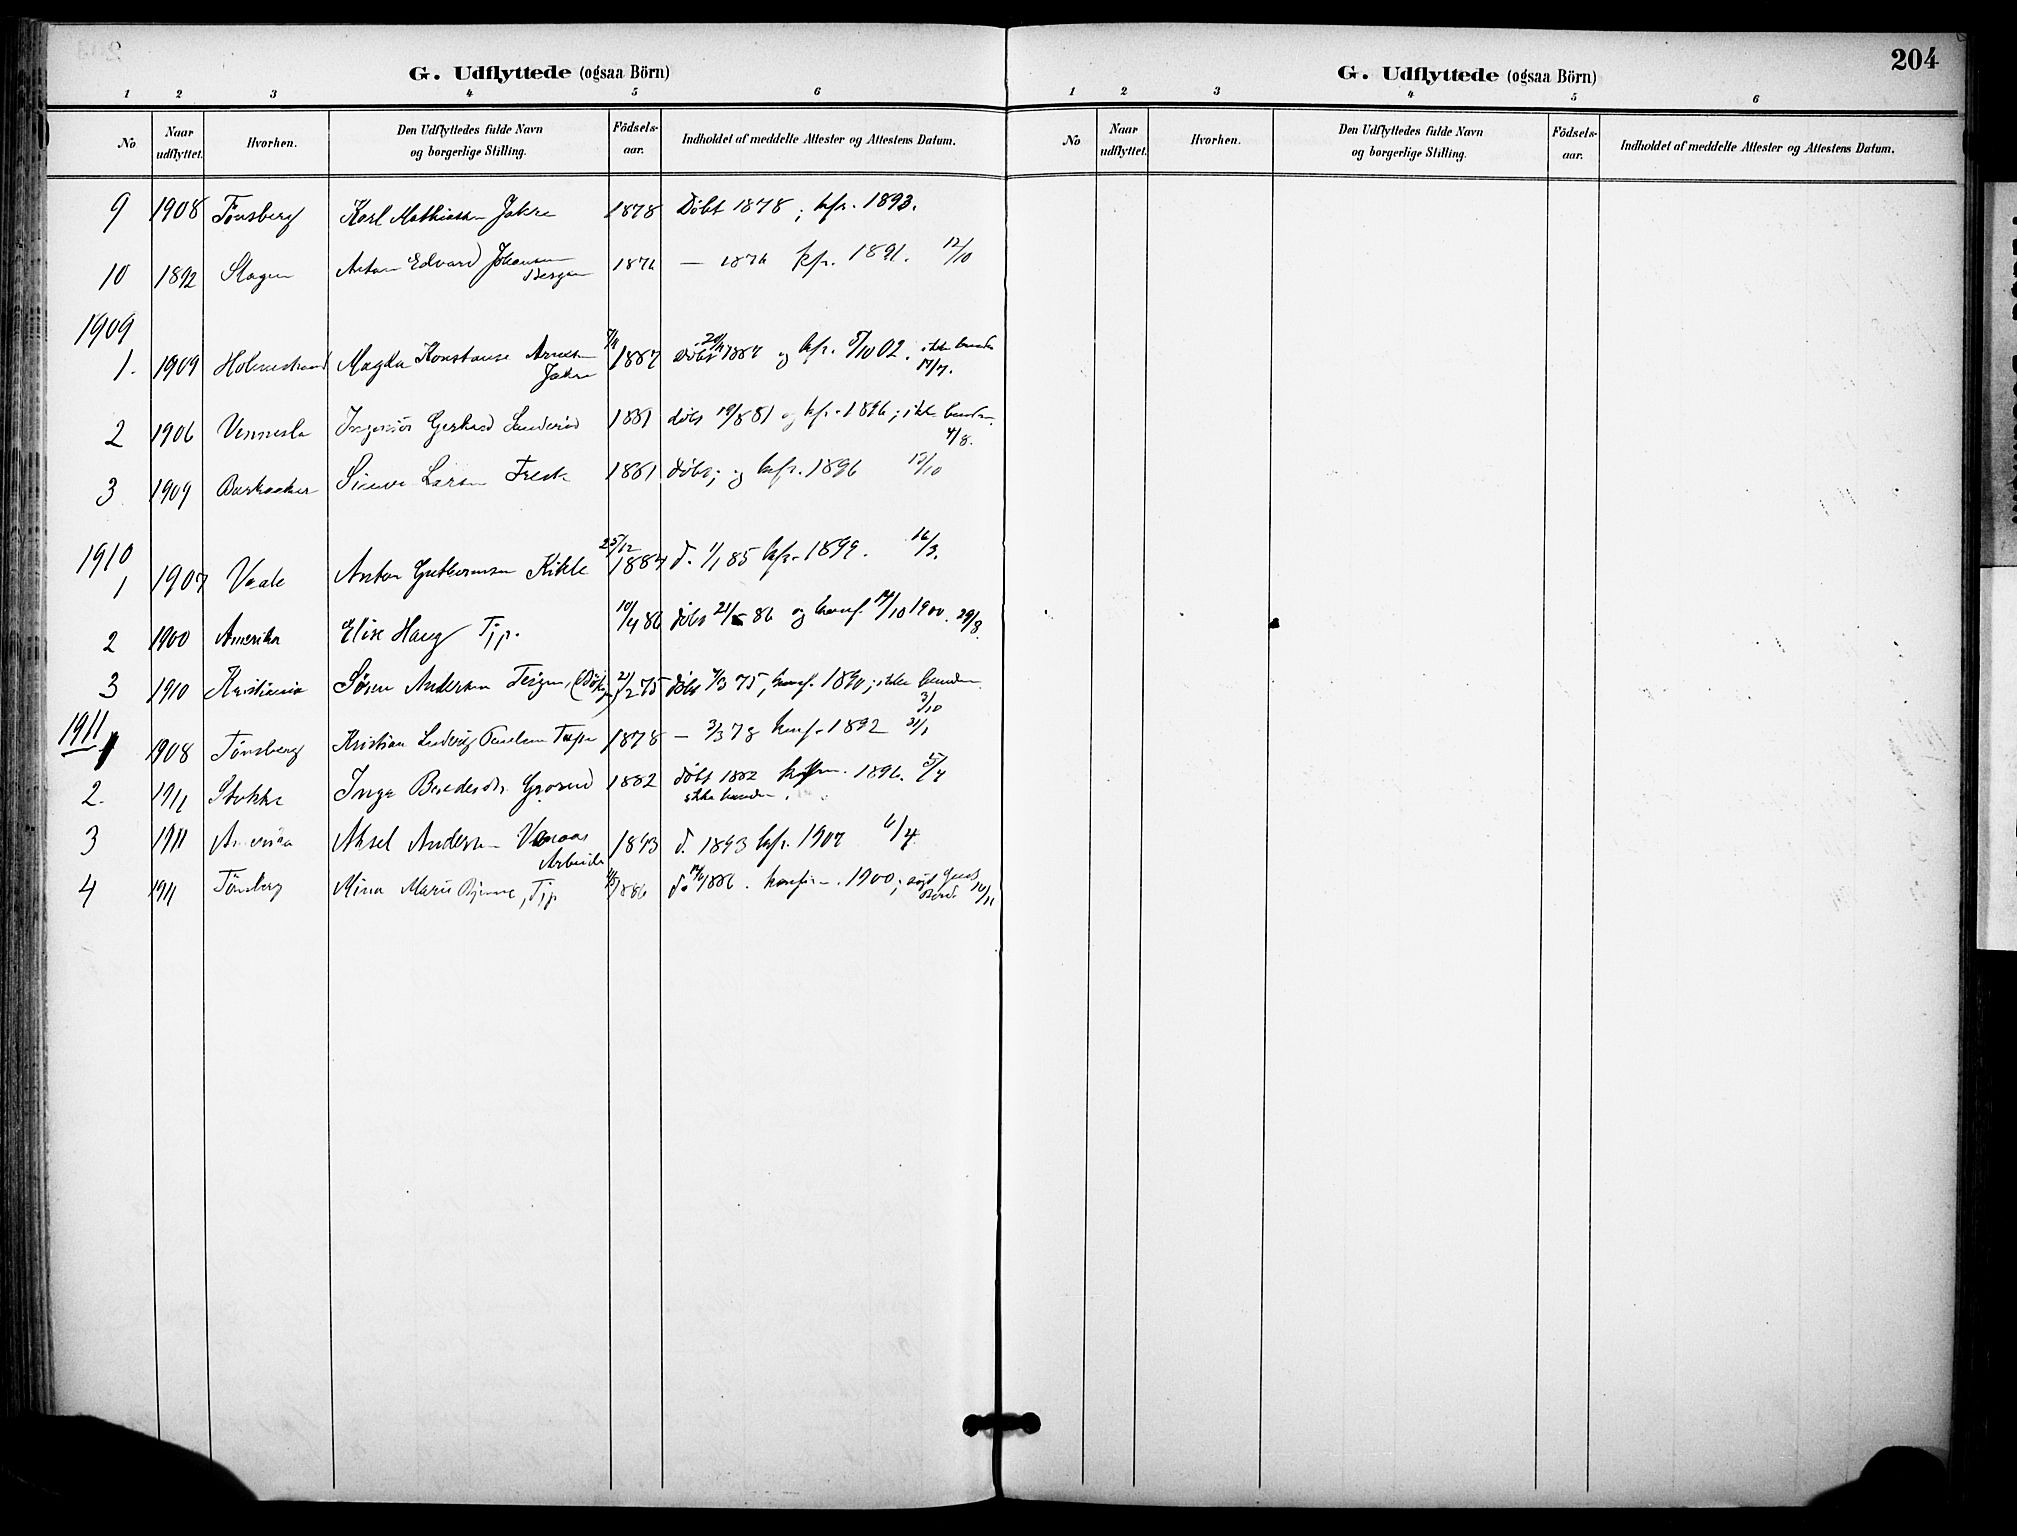 G. Udflyttede (ogsaa Börn)
1 2 3 4 5 6
No Naar udflyttet. Hvorhen. Den Udflyttedes fulde Navn og borgerlige Stilling. Födsels-aar. Indholdet af meddelte Attester og Attestens Datum.
9 1908 Tønsberg Karl Mathiassen Jakre 1878 Døbt 1878; kfr. 1893.
10 1892 Slagen Anton Edvard Johansen 1876 — 1876 kfr. 1891. 12/10
Bergan
1909
1. 1909 Holmestrand Magda Konstanse 1887 Døbt 1887 og kfr. 5/10 02. ikke bunden
Jakre 17/7.
2 1906 Vennesla Ingeniør Gerhard 1881 døbt 19/8 81 og kfr. 1896; ikke bunden.
4/8.
3 1909 Barkaaker Larsen 1881 døbt; og kfr. 1896 12/10
1910
25/12
1 1907 Vaale Anton Guttormsen 1884 d. 1/1 85 kfr. 1899. 16/3.
2 1900 Amerika Elise Haug Tjp. 10/4 86 døbt 86 og konf. 14/10 1900. 29/8.
3 1910 Kristiania Søren Andersen 21/2 75 døbt 75, konf. 1890; ikke bunden
3/10
1911
1 1908 Tønsberg Kristian Ludvig Paulsen 1878 — 3/3 78 konf. 1892 21/1
2. 1911 Stokke Inga 1882 døbt 1882 kfr. 1896. 5/4
ikke bunden.
3 1911 Aksel Andersen 1893 d. 1893 kfr. 1907 6/4.
Arbeider
4 1911 Tønsberg Mina Marie Bjerune, Tjp 1886 d. 1886. konfirm. 1900;
204
G. Udflyttede (ogsaa Börn)
1 2 3 4 5 6
No Naar udflyttet. Hvorhen. Den Udflyttedes fulde Navn og borgerlige Stilling. Födsels-aar. Indholdet af meddelte Attester og Attestens Datum.